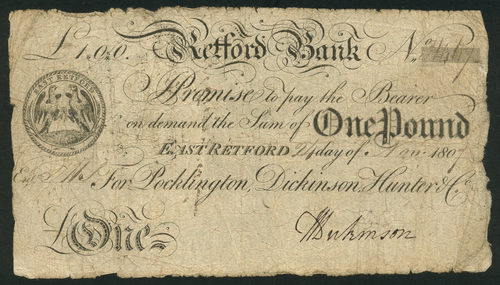 £1.0.0. Retford Bank No.
EAST RETFORD
I Promise to pay the Bearer
on demand the Sum of One Pound
EAST RETFORD 24 day of 180
Entd. For Pocklington, Dickinson, Hunter & Co.
£One
Dickinson